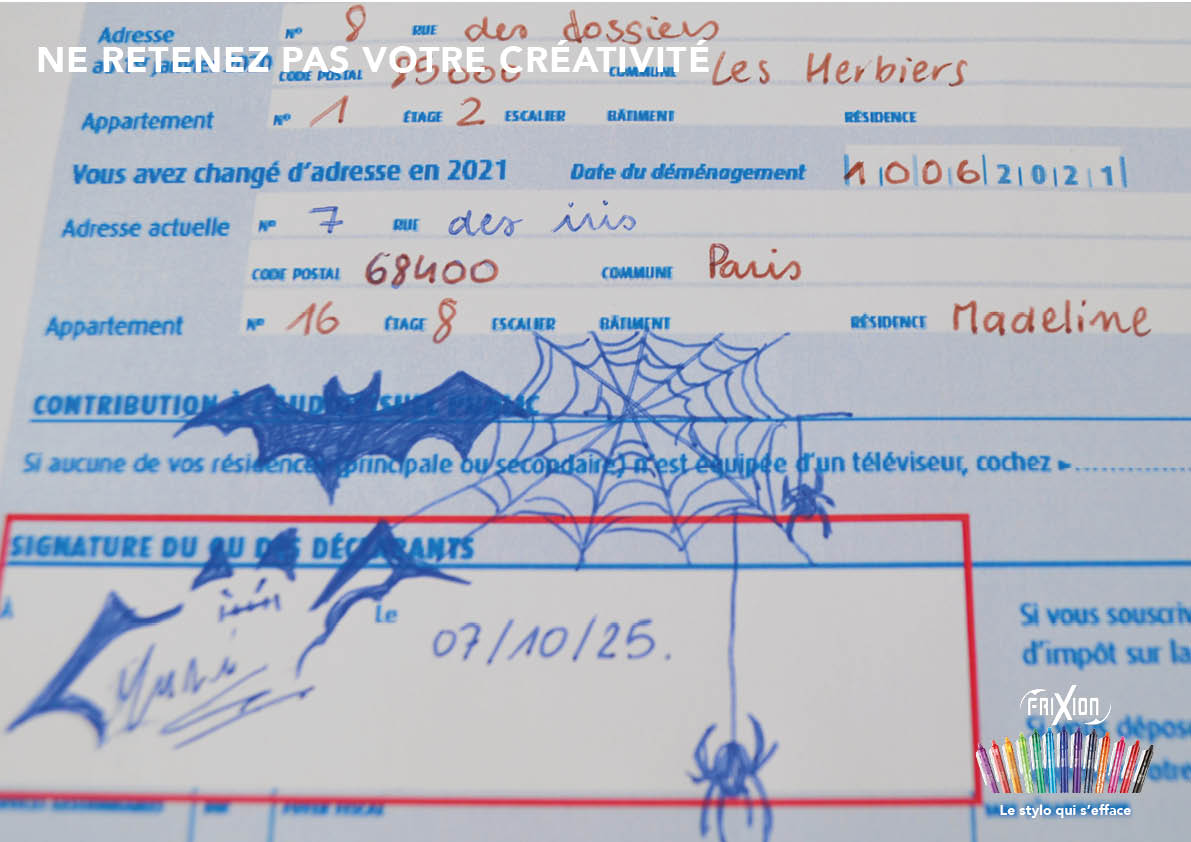 Adresse N° 8 RUE des dossiers
NE RETENEZ PAS VOTRE CRÉATIVITÉ
CODE POSTAL COMMUNE Les Herbiers
Appartement N° 1 ÉTAGE 2 ESCALIER BÂTIMENT RÉSIDENCE
Vous avez changé d'adresse en 2021 Date du déménagement 10062021
Adresse actuelle N° 7 RUE des iris
CODE POSTAL 68400 COMMUNE Paris
Appartement N° 16 ÉTAGE 8 ESCALIER BÂTIMENT RÉSIDENCE Madeline
CONTRIBUTION À L'AUDIOVISUEL PUBLIC
Si aucune de vos résidences (principale ou secondaire) n'est équipée d'un téléviseur, cochez ►
SIGNATURE DU OU DES DÉCLARANTS
À Le
07/10/25.
Si vous souscriv
d'impôt sur la
FRIXION
Le stylo qui s'efface